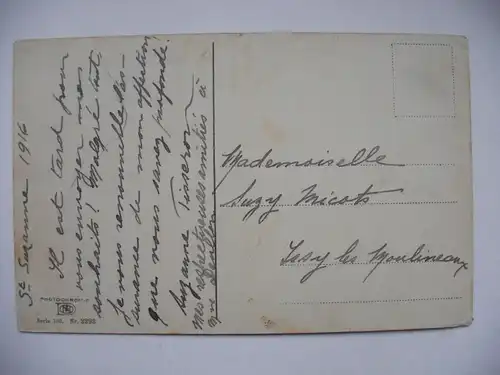 Ste Suzanne 1916
Il est tard pour
vous envoyer mes
souhaits! Malgré tout
je vous renouvelle l'as-
surance de mon affection
que vous savez profonde!
Suzanne Tisseron
Mes respectueuses amitiés à
Mademoiselle
Suzy Micots
Issy les Moulineaux
PHOTOCHROMIE
Serie 105. Nr. 2222